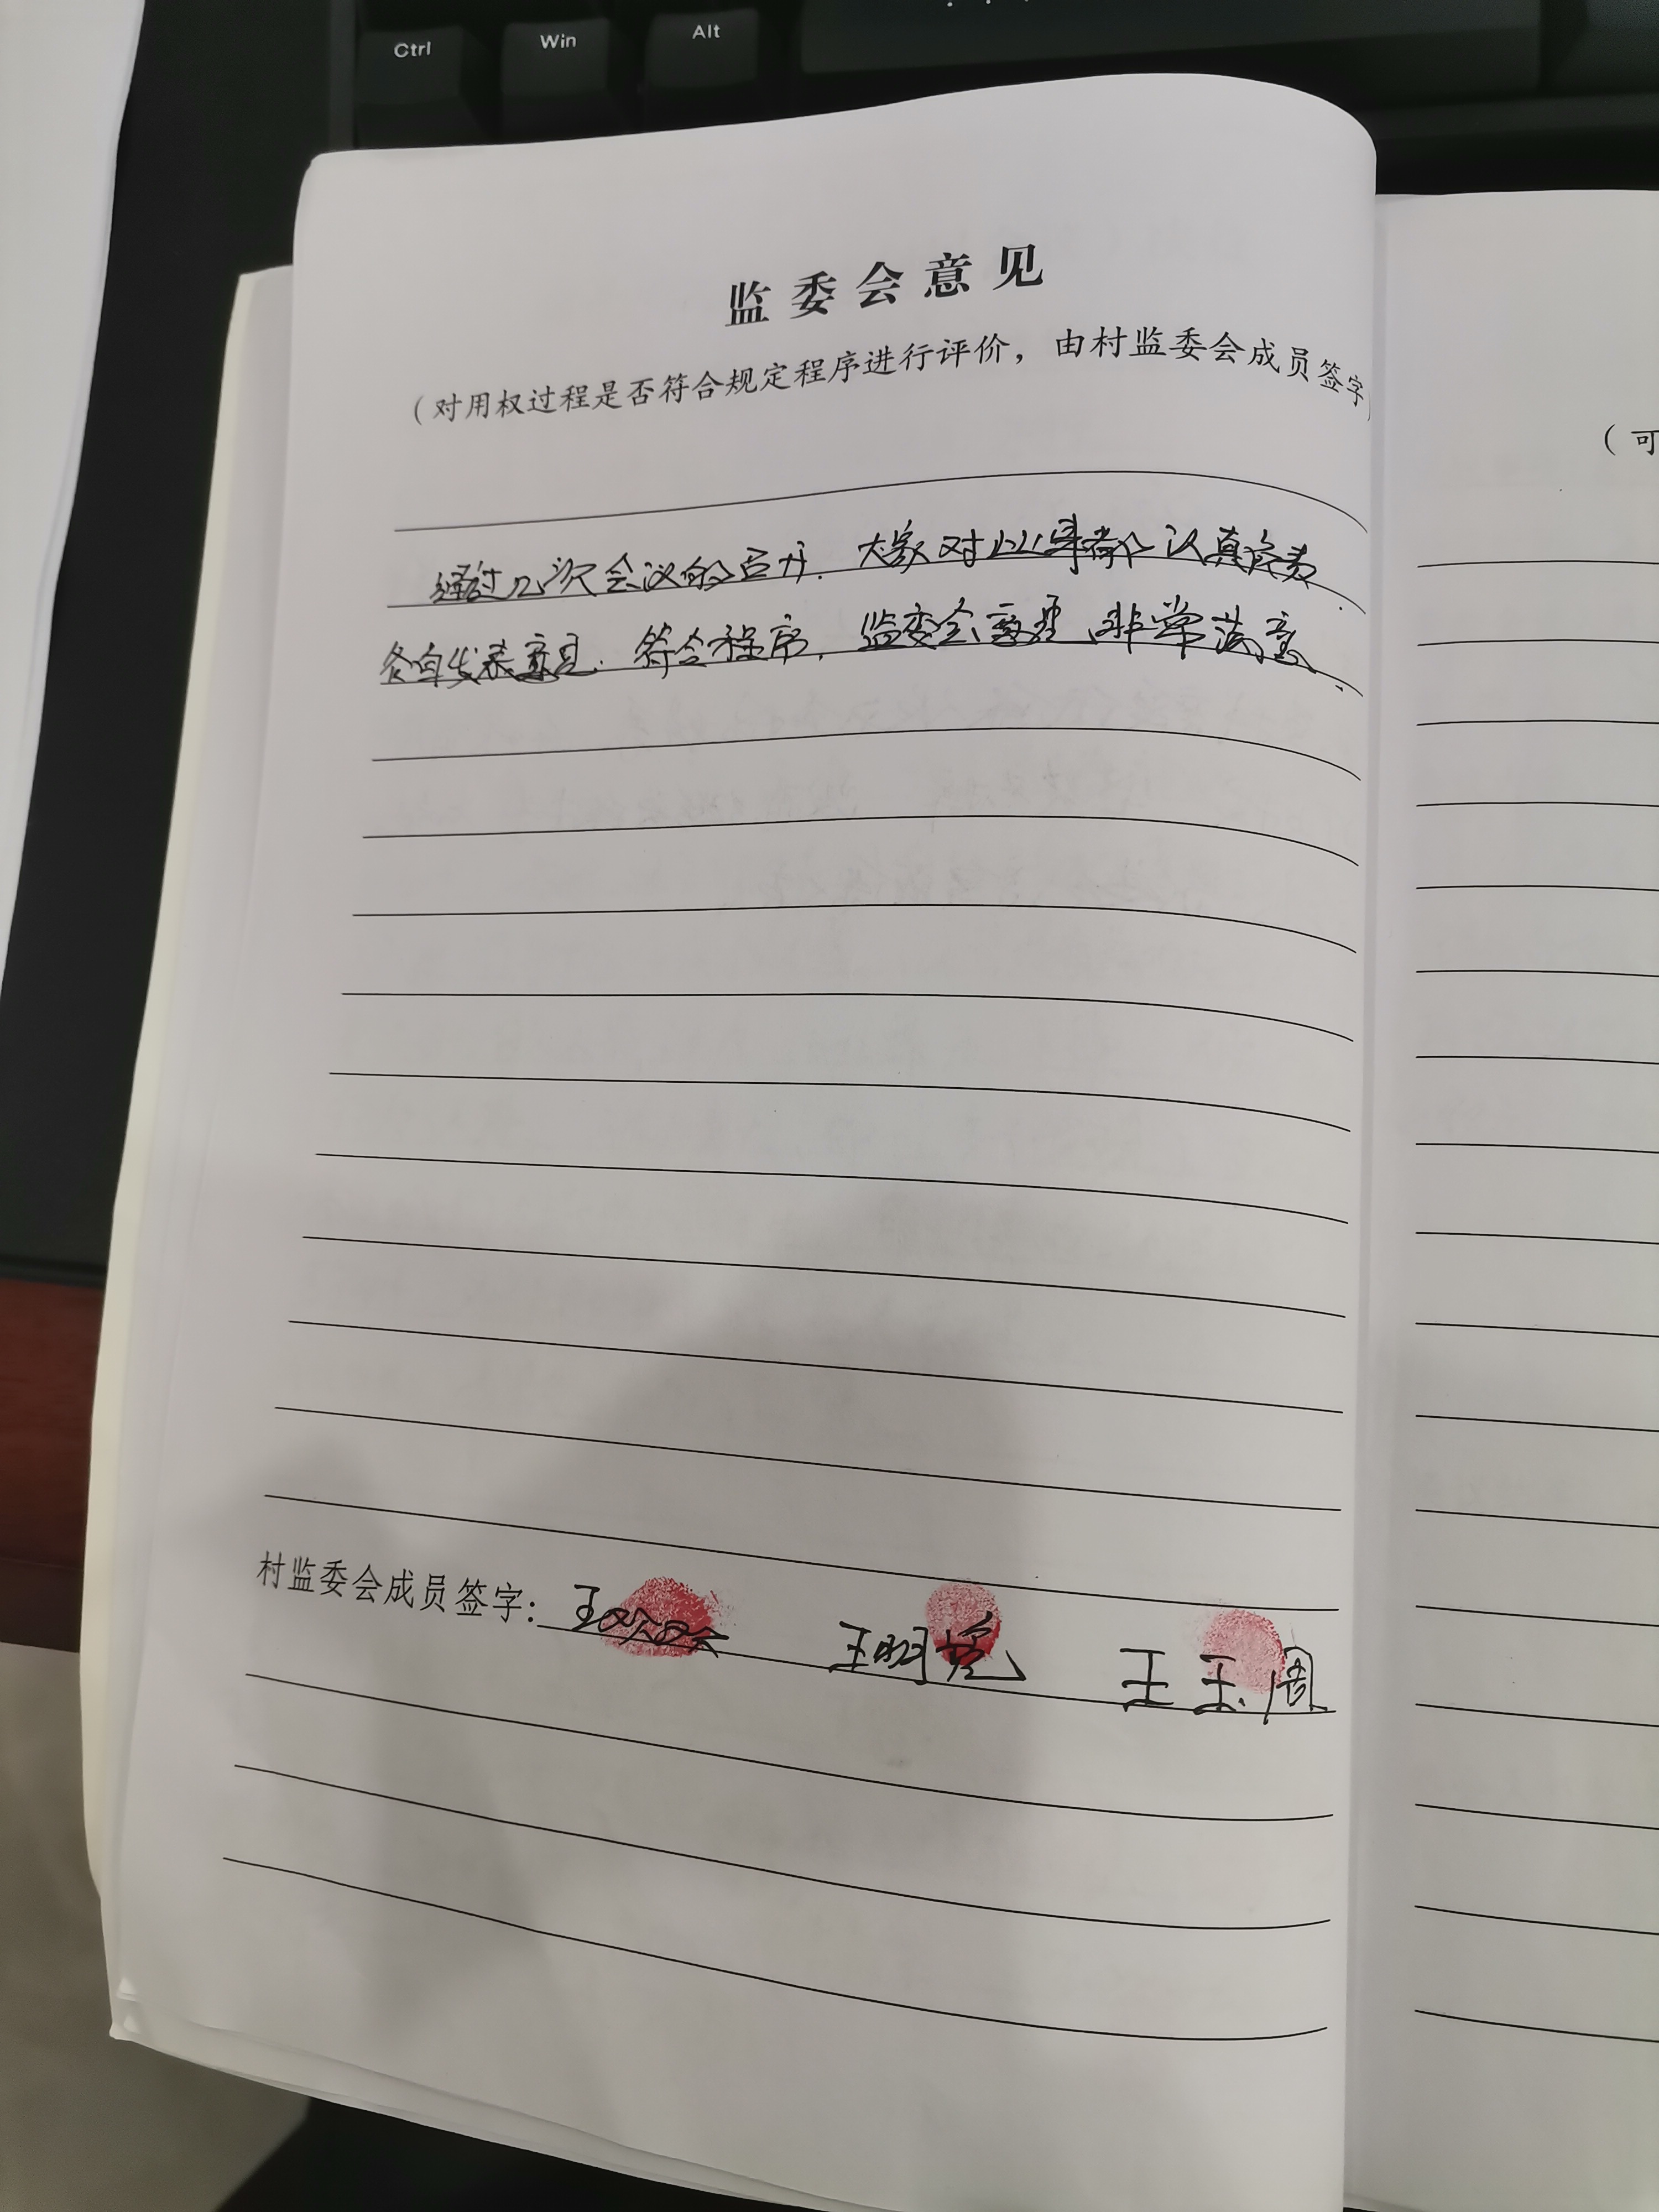 Ctrl Win Alt
监委会意见
（对用权过程是否符合规定程序进行评价，由村监委会成员签字）
（可
经过几次会议的召开，大家对此事都认真负责，
各自发表意见，符合程序，监委会 非常满意．
村监委会成员签字： 王 王明 王玉周